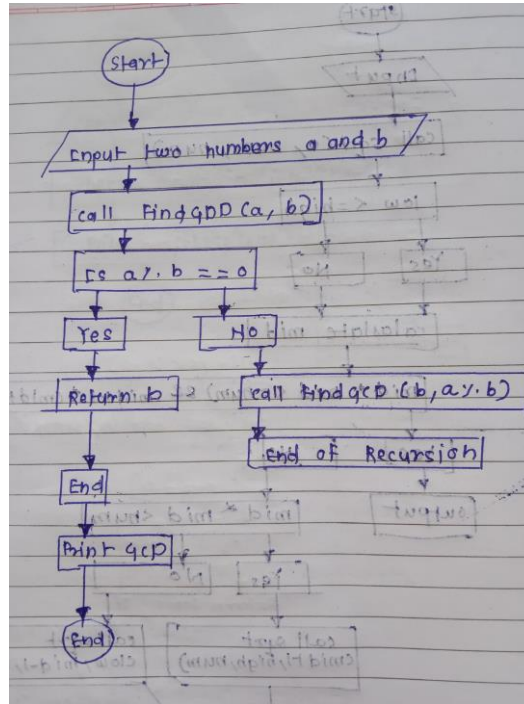 Start
Input two numbers a and b
Call FindGDD (a, b)
Is a%. b == 0
Yes
No
Return b
Call FindGCD (b, a%. b)
End of Recursion
End
Print GCD
End